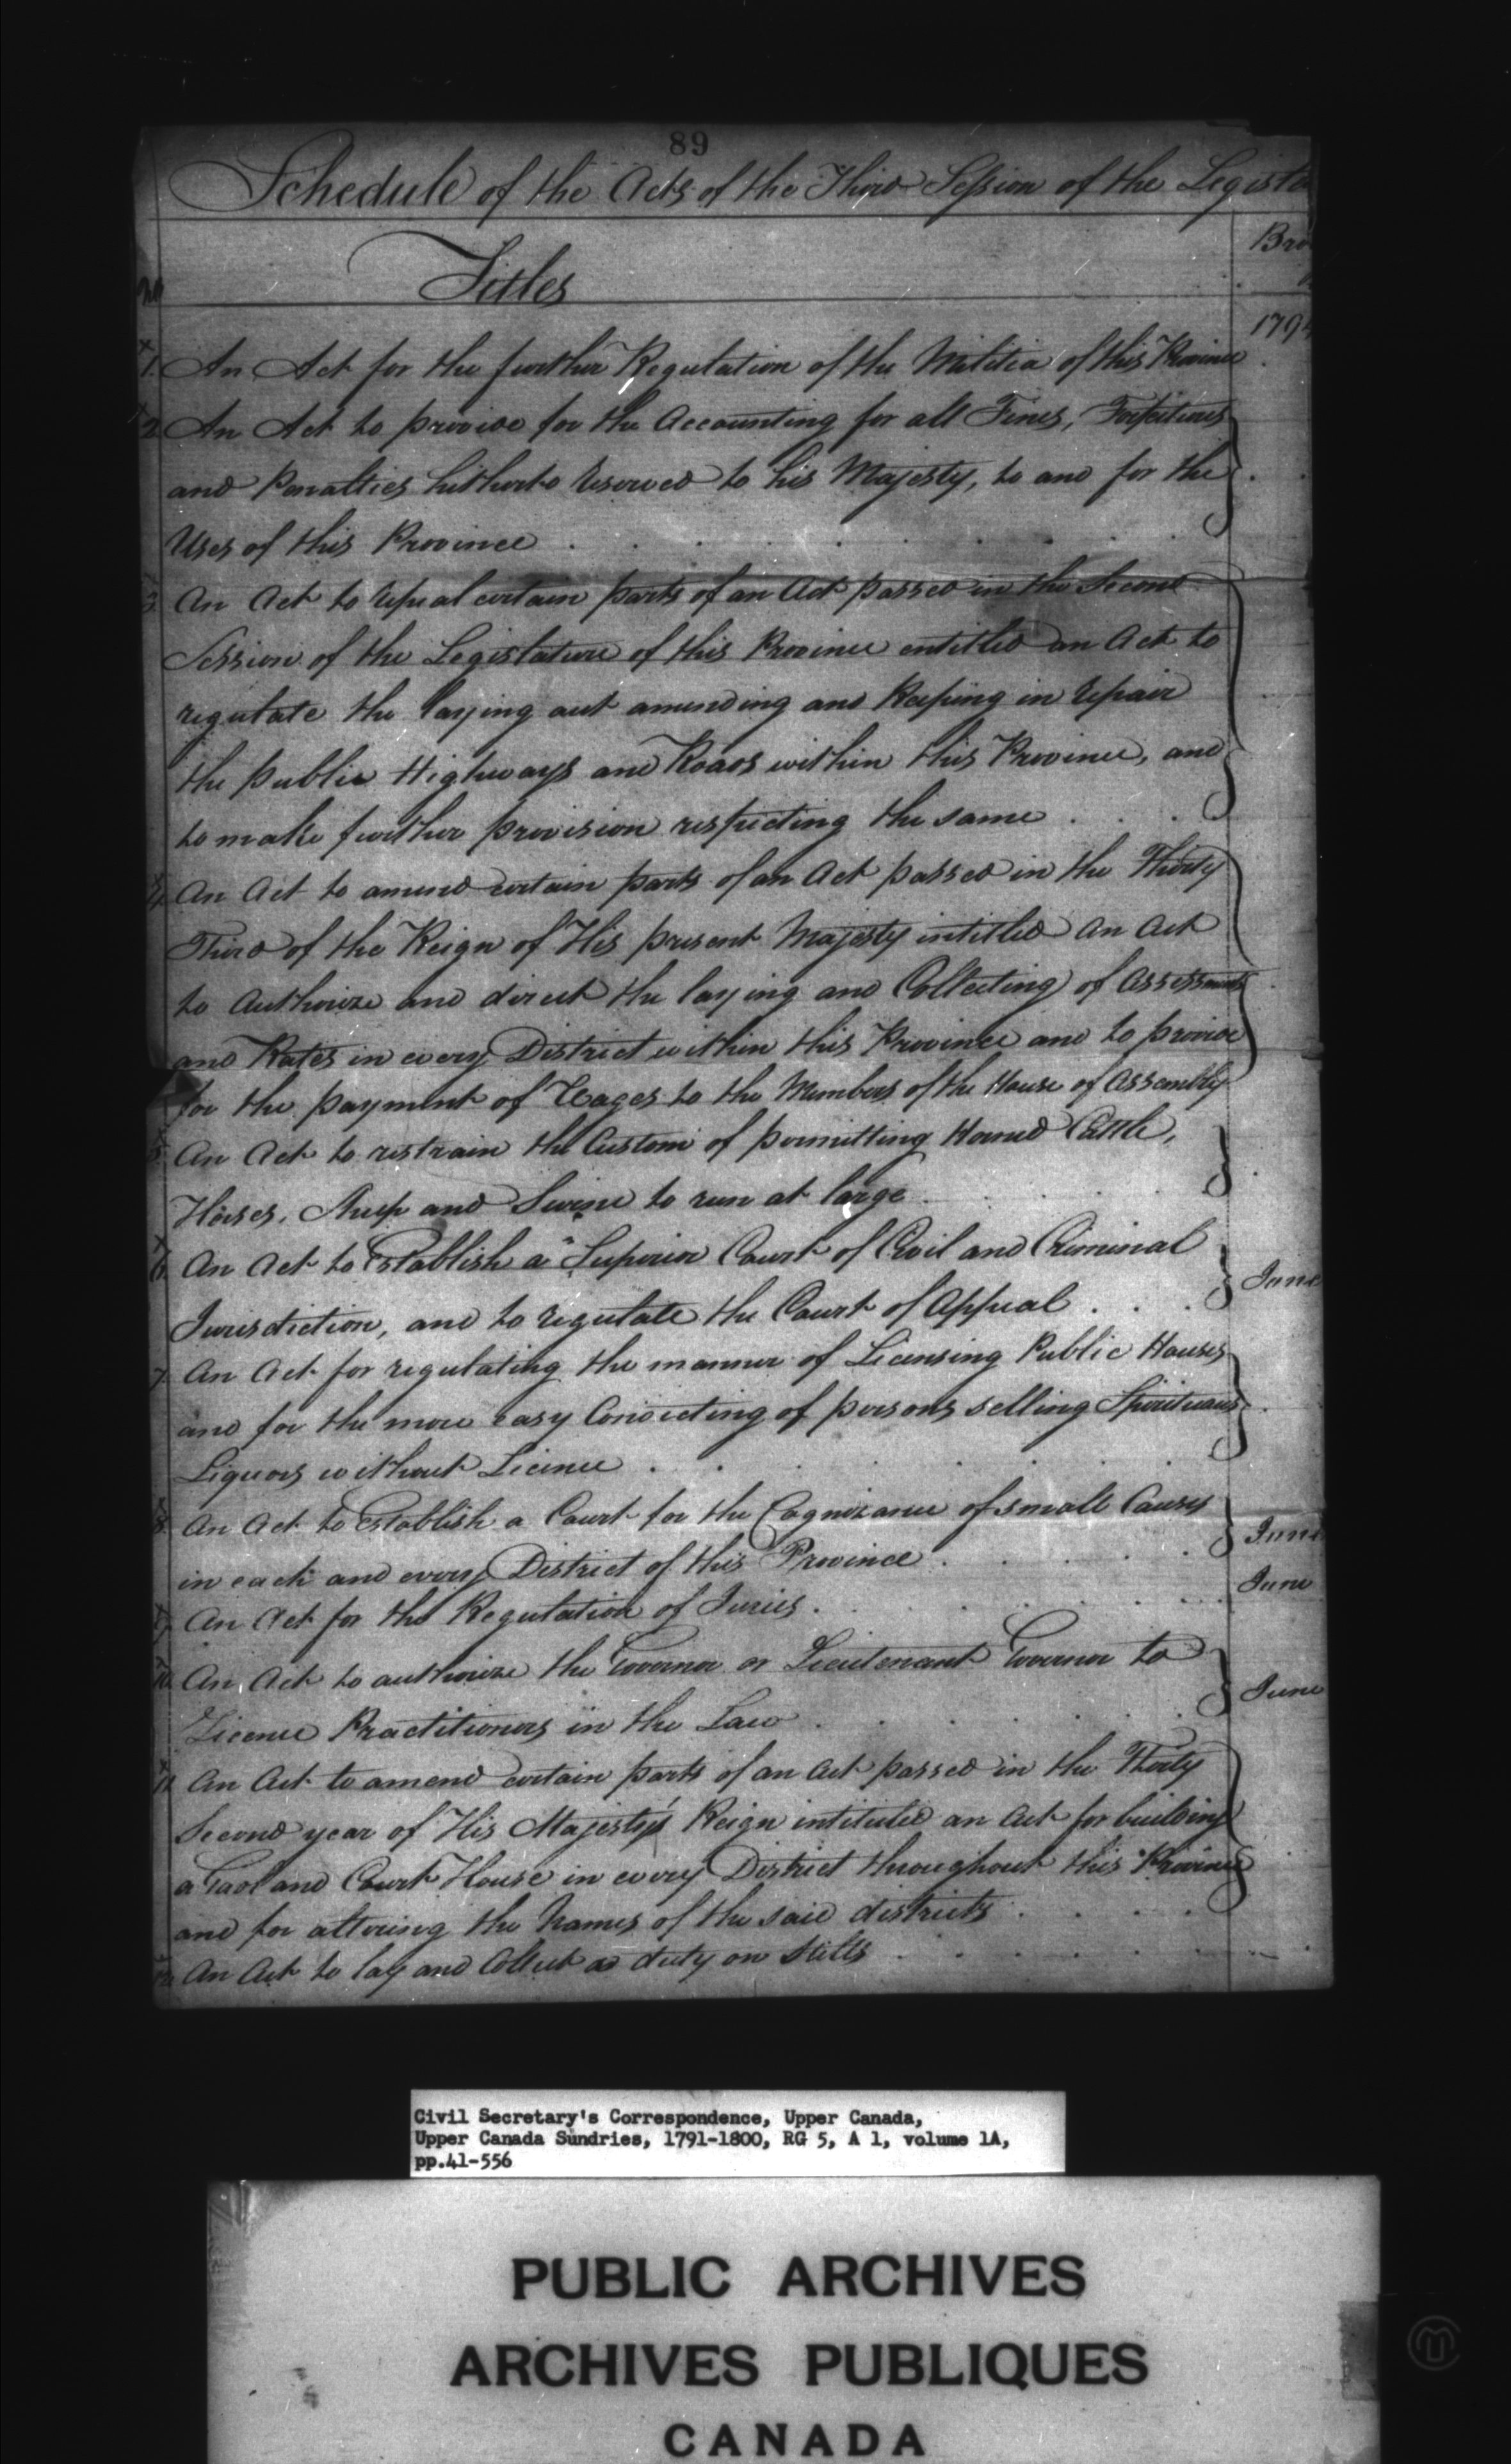 89
Schedule of the Acts of the Third Session of the Legisla
Bro
No Titles
1794
1. An Act for the further Regulation of the Militia of this Province
2. An Act to provide for the Accounting for all Fines, Forfeitures
and Penalties hitherto reserved to his Majesty, to and for the
Uses of this Province
3. An Act to repeal certain parts of an Act passed in the Second
Session of the Legislature of this Province entitled an Act to
regulate the laying out amending and Keeping in repair
the public Highways and Roads within this Province, and
to make further provision respecting the same
4. An Act to amend certain parts of an Act passed in the Thirty
Third of the Reign of His present Majesty intitled An Act
to Authorize and direct the laying and Collecting of Assessments
and Rates in every District within this Province and to provide
for the payment of Wages to the Members of the House of Assembly
5. An Act to restrain the Custom of permitting Horned Cattle,
Horses, Sheep and Swine to run at large
6. An Act to Establish a Superior Court of Civil and Criminal
June
Jurisdiction, and to regulate the Court of Appeal
7. An Act for regulating the manner of Licensing Public Houses
and for the more easy Convicting of persons selling Spirituous
Liquors without Licence
8. An Act to Establish a Court for the Cognizance of small Causes
June
in each and every District of this Province
June
9. An Act for the Regulation of Juries
10. An Act to authorize the Governor or Lieutenant Governor to
June
License Practitioners in the Law
11. An Act to amend certain parts of an Act passed in the Thirty
Second year of His Majesty's Reign intituled an Act for building
a Gaol and Court House in every District throughout this Province
and for altering the Names of the said districts
12. An Act to lay and Collect a duty on Stills
Civil Secretary's Correspondence, Upper Canada,
Upper Canada Sundries, 1791-1800, RG 5, A 1, volume 1A,
pp.41-556
PUBLIC ARCHIVES
ARCHIVES PUBLIQUES
CANADA